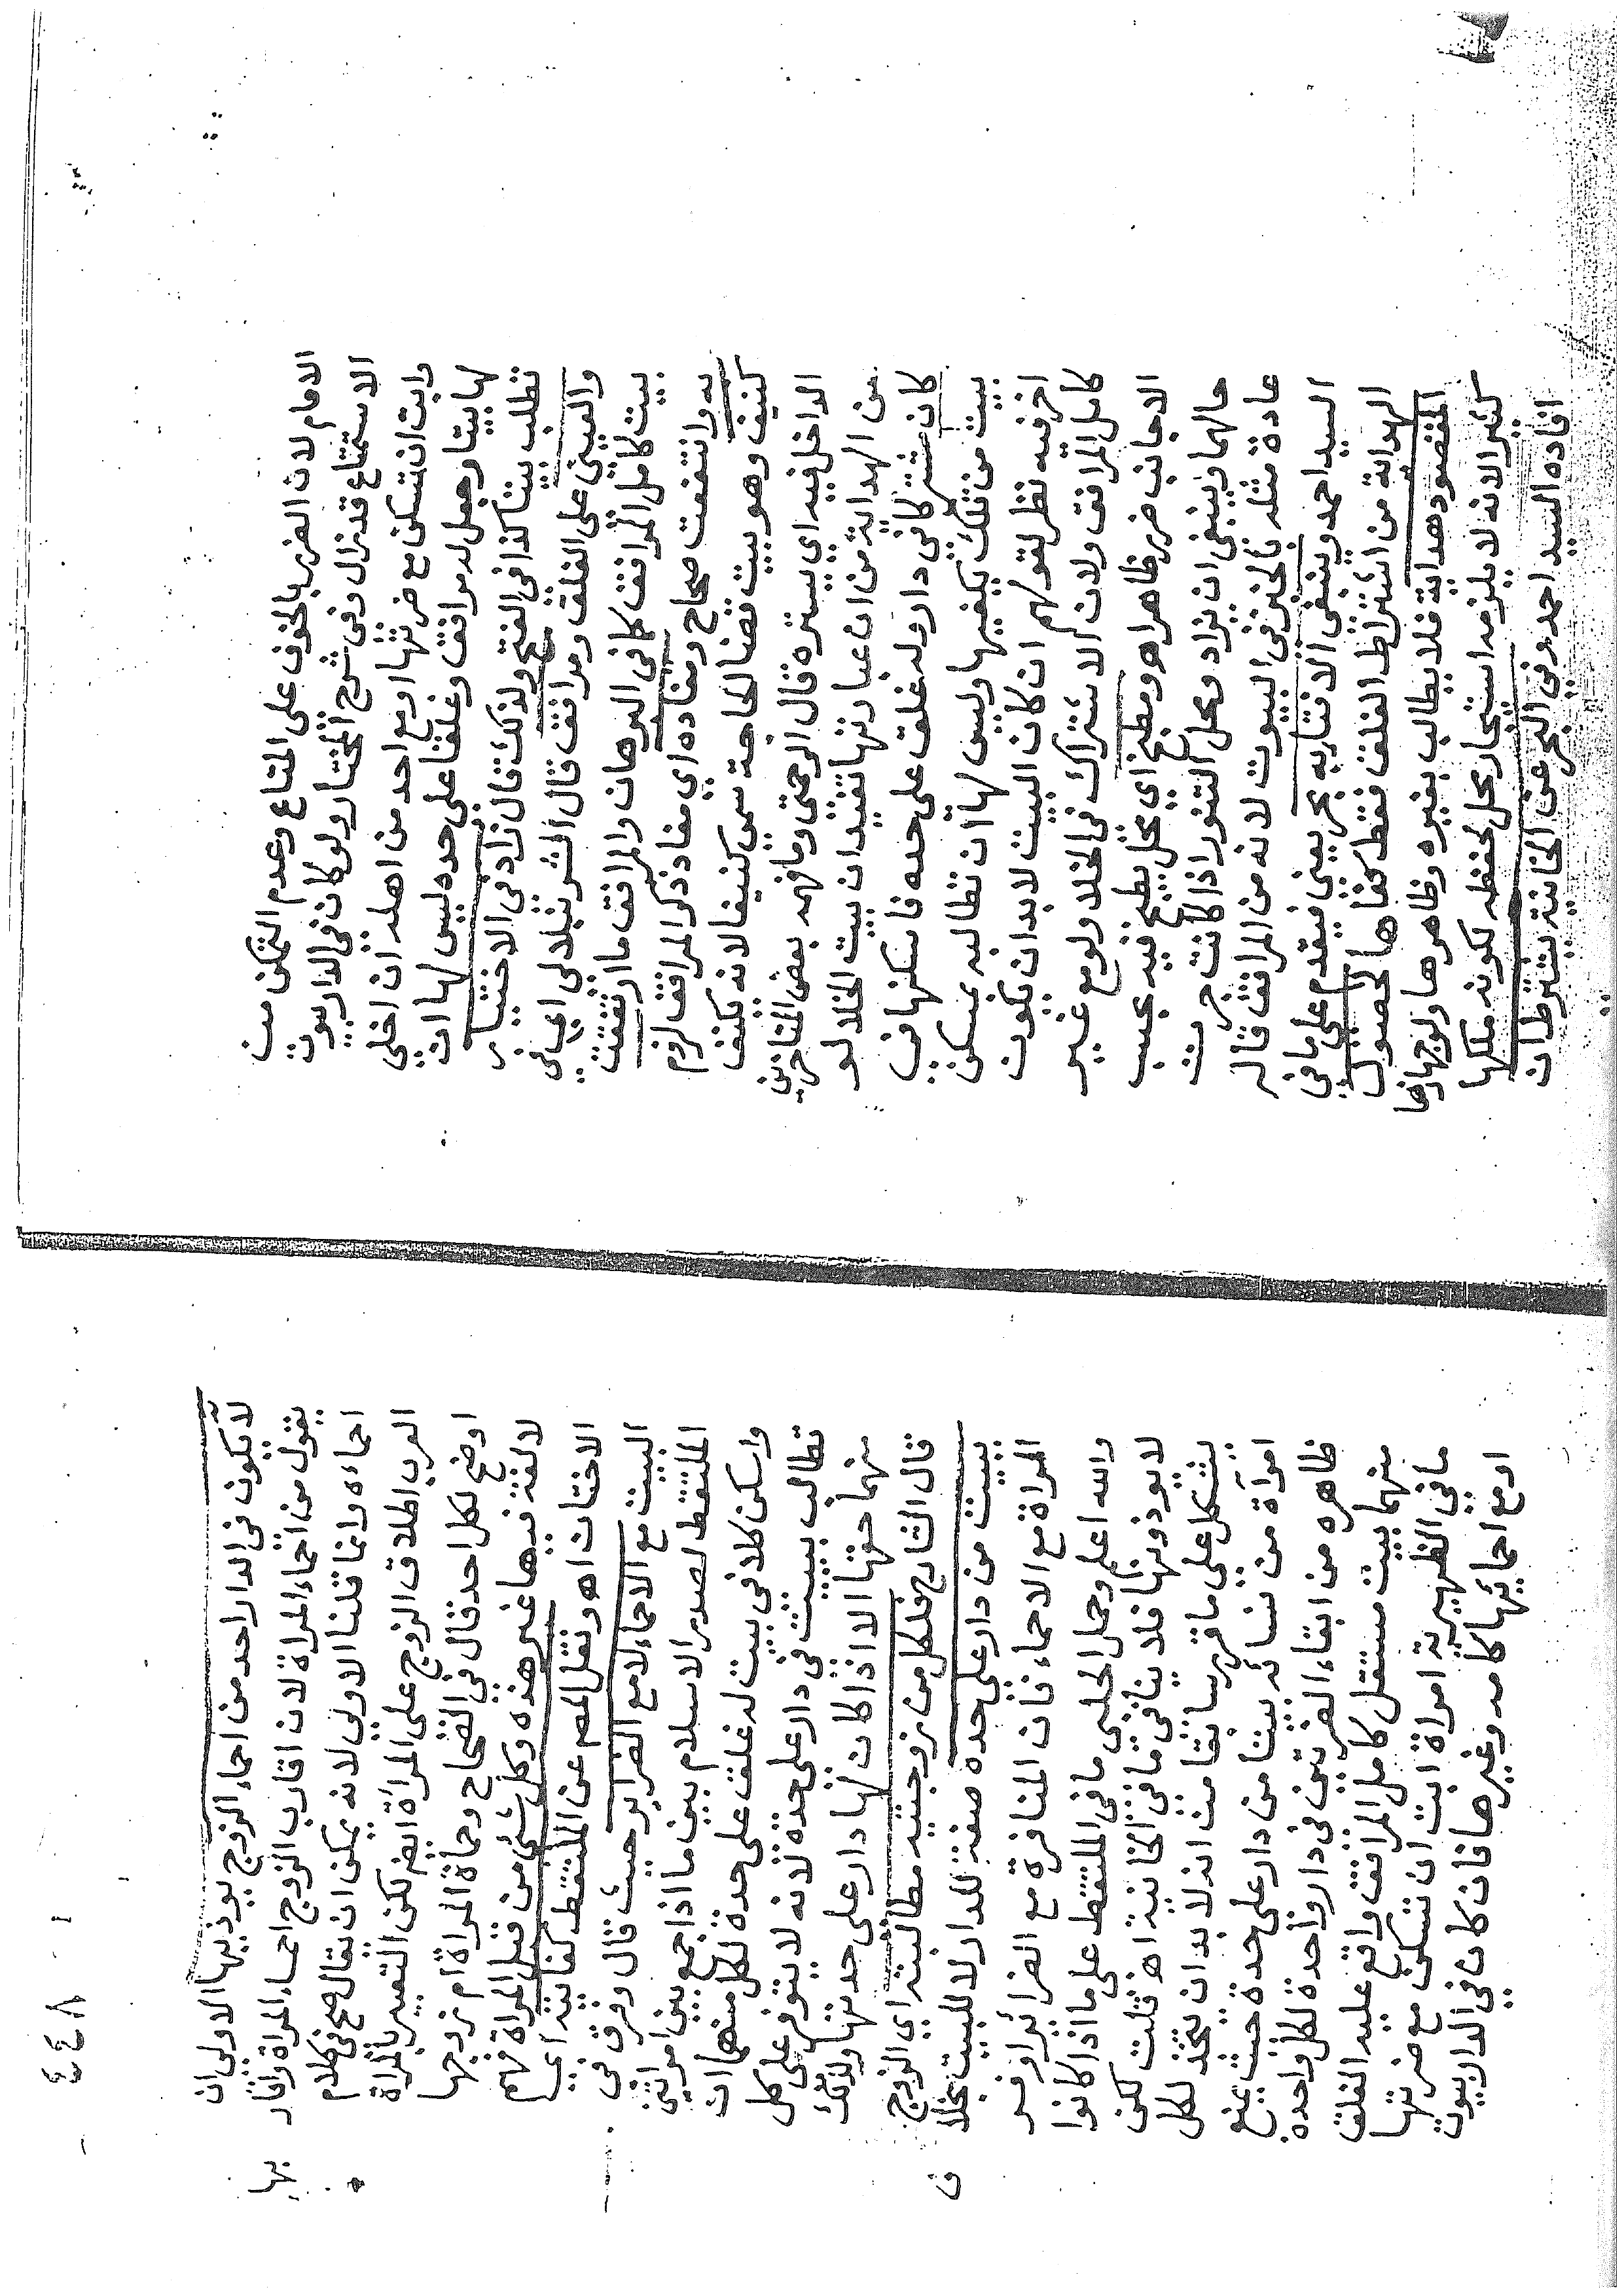 الامام لان الضرر بالخوف على المتاع وعدم التمكن من
الاستمتاع قد زال وفى شرح المختار ولو كان فى الدار بيوت
وابت ان تسكن مع ضرتها او مع احد من اهله ان اخلى
لها بيتا وجعل له مرافق وغلقا على حده ليس لها ان
تطلب بيتا كذا فى الفتح ولذلك قال زاد فى الاختيار
والعينى على الغلق ومرافق قال الشرنبلالي اي فى
بيت كامل المرافق كما فى البرهان والمرافق ما ارتفقت
به وانتفعت صحاح ومفاده اي مفاد ذكر المرافق لزوم
كنيف وهو بيت قضا الحاجة سمى كنيفا لانه يكنف
الداخل فيه اي يستره قال الرحمتى وما فهمه بعض المتاخرين
من الهداية من ان عبارتها تفيد ان بيت الخلا لو
كان مشتركا في دار وله غلق على حده فاسكنها فى
بيت من تلك يكفيها وليس لها ان تطالبه بمسكن
اخر فيه نظر لقولهم ان كان البيت لابد ان يكون
كامل المرافق ولان الاشتراك فى الخلا ولو مع غير
الاجانب ضرر ظاهر اهـ ومطبخ اي محل يطبخ فيه بحسب
حالهما وينبغى ان يزاد ومحل التنور اذا كانت جرت
عادة مثله بالخبز فى البيوت لانه من المرافق قاله
السيد احمد وينبغى الافتا به بحر يعنى فيقدم على ما فى
الهداية من اشتراط الغلق فقط كفاها لحصول
المقصود هداية فلا يطالب بغيره وظاهرها ولو جهازها
كثيرا لانه لا يلزمه استئجار محل لحفظه لكونه ملكها
افاده السيد احمد وفى البحر عن الخانية يشترط ان
٤٤٨
لا يكون فى الدار احد من احماء الزوج يوذيها الاولى ان
يقول من احماء المراة لان اقارب الزوج احماء المراة واقار بها
احماءه وانما قلنا الاولى لانه يمكن ان يقال صح فى كلام
العرب اطلاق الزوج على المراة ايضا لكن التعبير بالمراة
اوضح لكل احد قال فى الصحاح وحماة المراة ام زوجها
لا لغة فيها غير هذه وكل شئ من قبل المراة فهم
الاختان اهـ ونقل المصـ عن الملتقط كفايته اي
البيت مع الاحماء لا مع الضراير حيث قال وفرق فى
الملتقط لصدر الاسلام بين ما اذا جمع بين امراتين
واسكن كلا فى بيت له غلق على حدة لكل منهما ان
تطالب ببيت فى دار على حدة لانه لا يتوفر على كل
منهما حقها الا اذا كان لها دار على حدتها ولذلك
قال الشارح فلكل من زوجتيه مطالبته اي الزوج
ببيت من دار على حده صفة للدار لا للبيت بخلا ف
المراة مع الاحماء فان المنافرة مع الضرائر اوفر
والله اعلم وحمل الحلبى ما فى الملتقط على ما اذا كانوا
لا يوذونها فلا ينافى ما فى الخانية اهـ قلت لكن
يشكل على ما قرر سابقا من انه لا بد ان يتخذ لكل
امراة من نسائه بيتا من دار على حدة حيث يمنع
ظاهره من ابقاء الضرتين فى دار واحدة لكل واحدة
منهما بيت مستقل كامل المرافق واقع عليه الغلق
ما فى الظهيرية امراة ابت ان تسكن مع ضرتها
او مع احمائها كامه وغيرها فان كان فى الدار بيوت